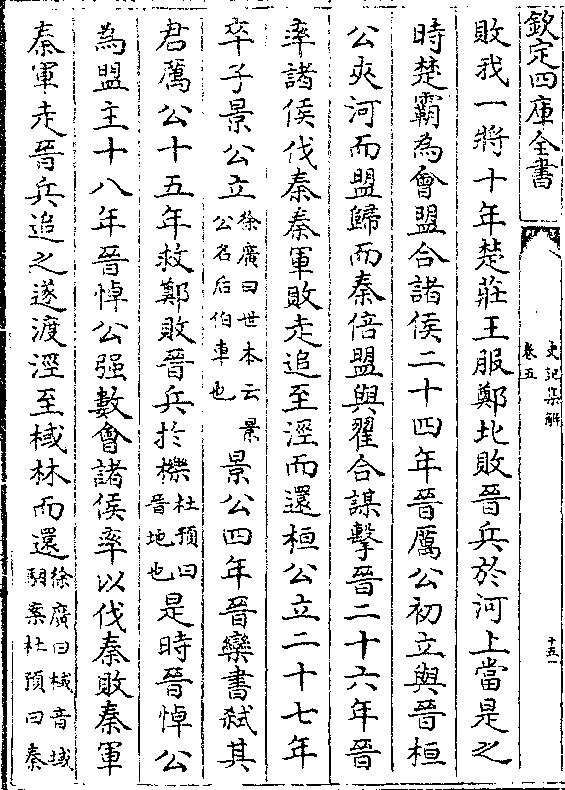 欽定四庫全書
史記集解
卷五
十五
敗我一將十年楚莊王服鄭北敗晉兵於河上當是之
時楚霸為會盟合諸侯二十四年晉厲公初立與晉桓
公夾河而盟歸而秦倍盟與翟合謀擊晉二十六年晉
率諸侯伐秦秦軍敗走追至涇而還桓公立二十七年
卒子景公立徐廣曰世本云景公名后伯車也景公四年晉欒書弒其
君厲公十五年救鄭敗晉兵於櫟杜預曰晉地也是時晉悼公
為盟主十八年晉悼公强數會諸侯率以伐秦敗秦軍
秦軍走晉兵追之遂渡涇至棫林而還徐廣曰棫音域駰案杜預曰秦